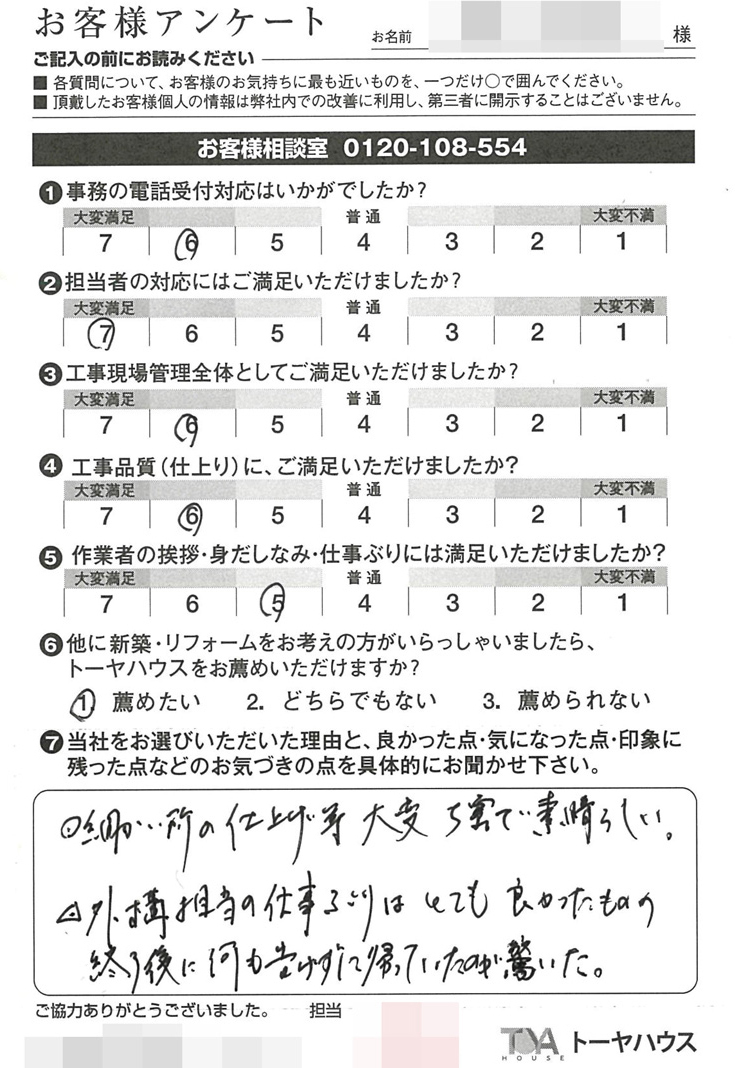 お客様アンケート
お名前 様
ご記入の前にお読みください
■ 各質問について、お客様のお気持ちに最も近いものを、一つだけ○で囲んでください。
■ 頂戴したお客様個人の情報は弊社内での改善に利用し、第三者に開示することはございません。
お客様相談室 0120-108-554
❶事務の電話受付対応はいかがでしたか?
大変満足 普通 大変不満
7 6 5 4 3 2 1
❷担当者の対応にはご満足いただけましたか?
大変満足 普通 大変不満
7 6 5 4 3 2 1
❸工事現場管理全体としてご満足いただけましたか?
大変満足 普通 大変不満
7 6 5 4 3 2 1
❹工事品質(仕上り)に、ご満足いただけましたか?
大変満足 普通 大変不満
7 6 5 4 3 2 1
❺作業者の挨拶・身だしなみ・仕事ぶりには満足いただけましたか?
大変満足 普通 大変不満
7 6 5 4 3 2 1
❻他に新築・リフォームをお考えの方がいらっしゃいましたら、
トーヤハウスをお薦めいただけますか?
1 薦めたい 2. どちらでもない 3. 薦められない
❼当社をお選びいただいた理由と、良かった点・気になった点・印象に
残った点などのお気づきの点を具体的にお聞かせ下さい。
細かい所の仕上げ等 大変 で素晴らしい。
△外構担当の仕事ぶりはとても良かったものの
終了後に何も告げずに帰っていたのが驚いた。
ご協力ありがとうございました。 担当
TOYA HOUSE トーヤハウス